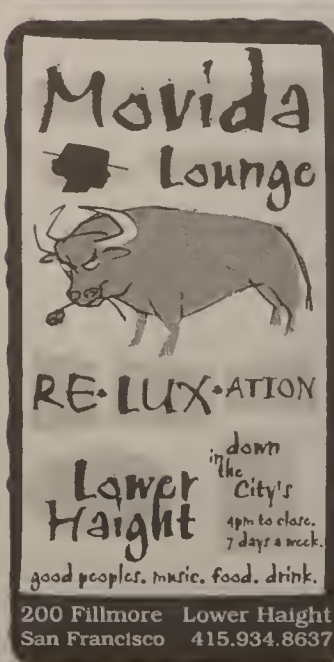 Movida
Lounge
RE·LUX·ATION
down
in the
City's
Lower
Haight
4pm to close.
7 days a week.
good peoples. music. food. drink.
200 Fillmore Lower Haight
San Francisco 415.934.8637